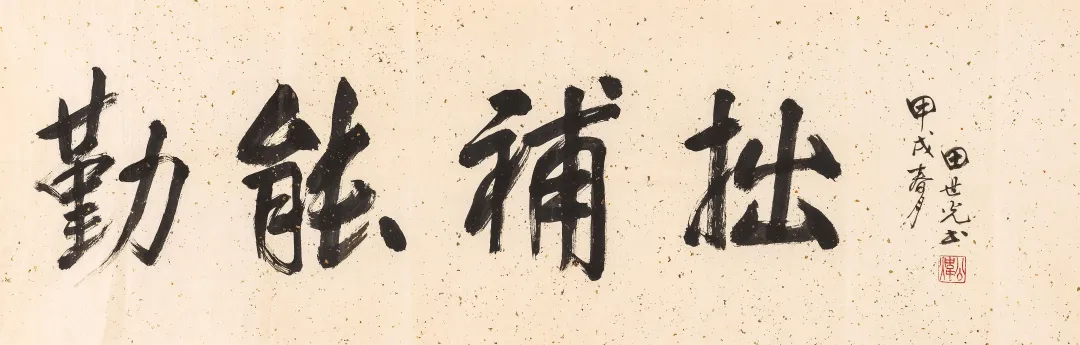 勤能補拙
甲戌春月
田世光书
公煒